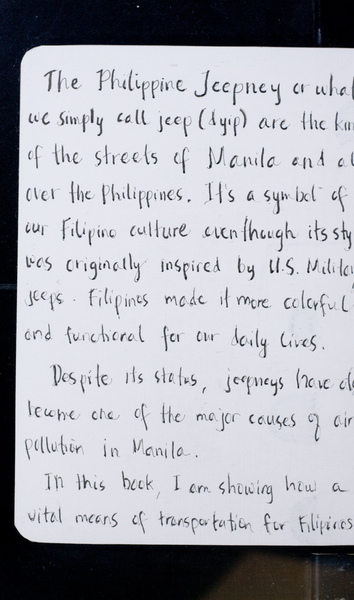 The Philippine Jeepney or what
we simply call jeep (dyip) are the
of the streets of Manila and
over the Philippines. It's a symbol of
our Filipino culture eventhough its
was originally inspired by U.S.
jeeps. Filipinos made it more colorful
and functional for our daily lives.
Despite its status, jeepneys have
become one of the major causes of air
pollution in Manila.
In this book, I am showing how a
vital means of transportation for Filipinos